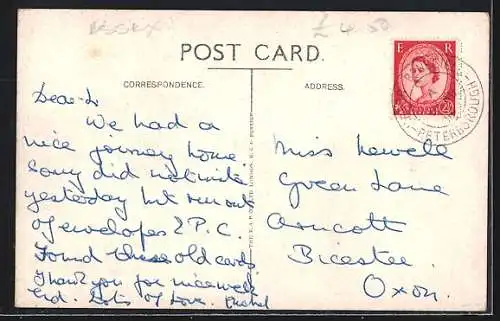 ESSEX
£4.50
POST CARD.
CORRESPONDENCE.
ADDRESS.
E R
2½
PETERBOROUGH
Dear
We had a
nice journey home
Sorry did not write
yesterday but run out
of envelopes & P.C.
Found these old cards
Thank you for nice week
End. Lots of Love. Rachel
Miss Newell
Green Lane
Arncott
Bicester
Oxon.